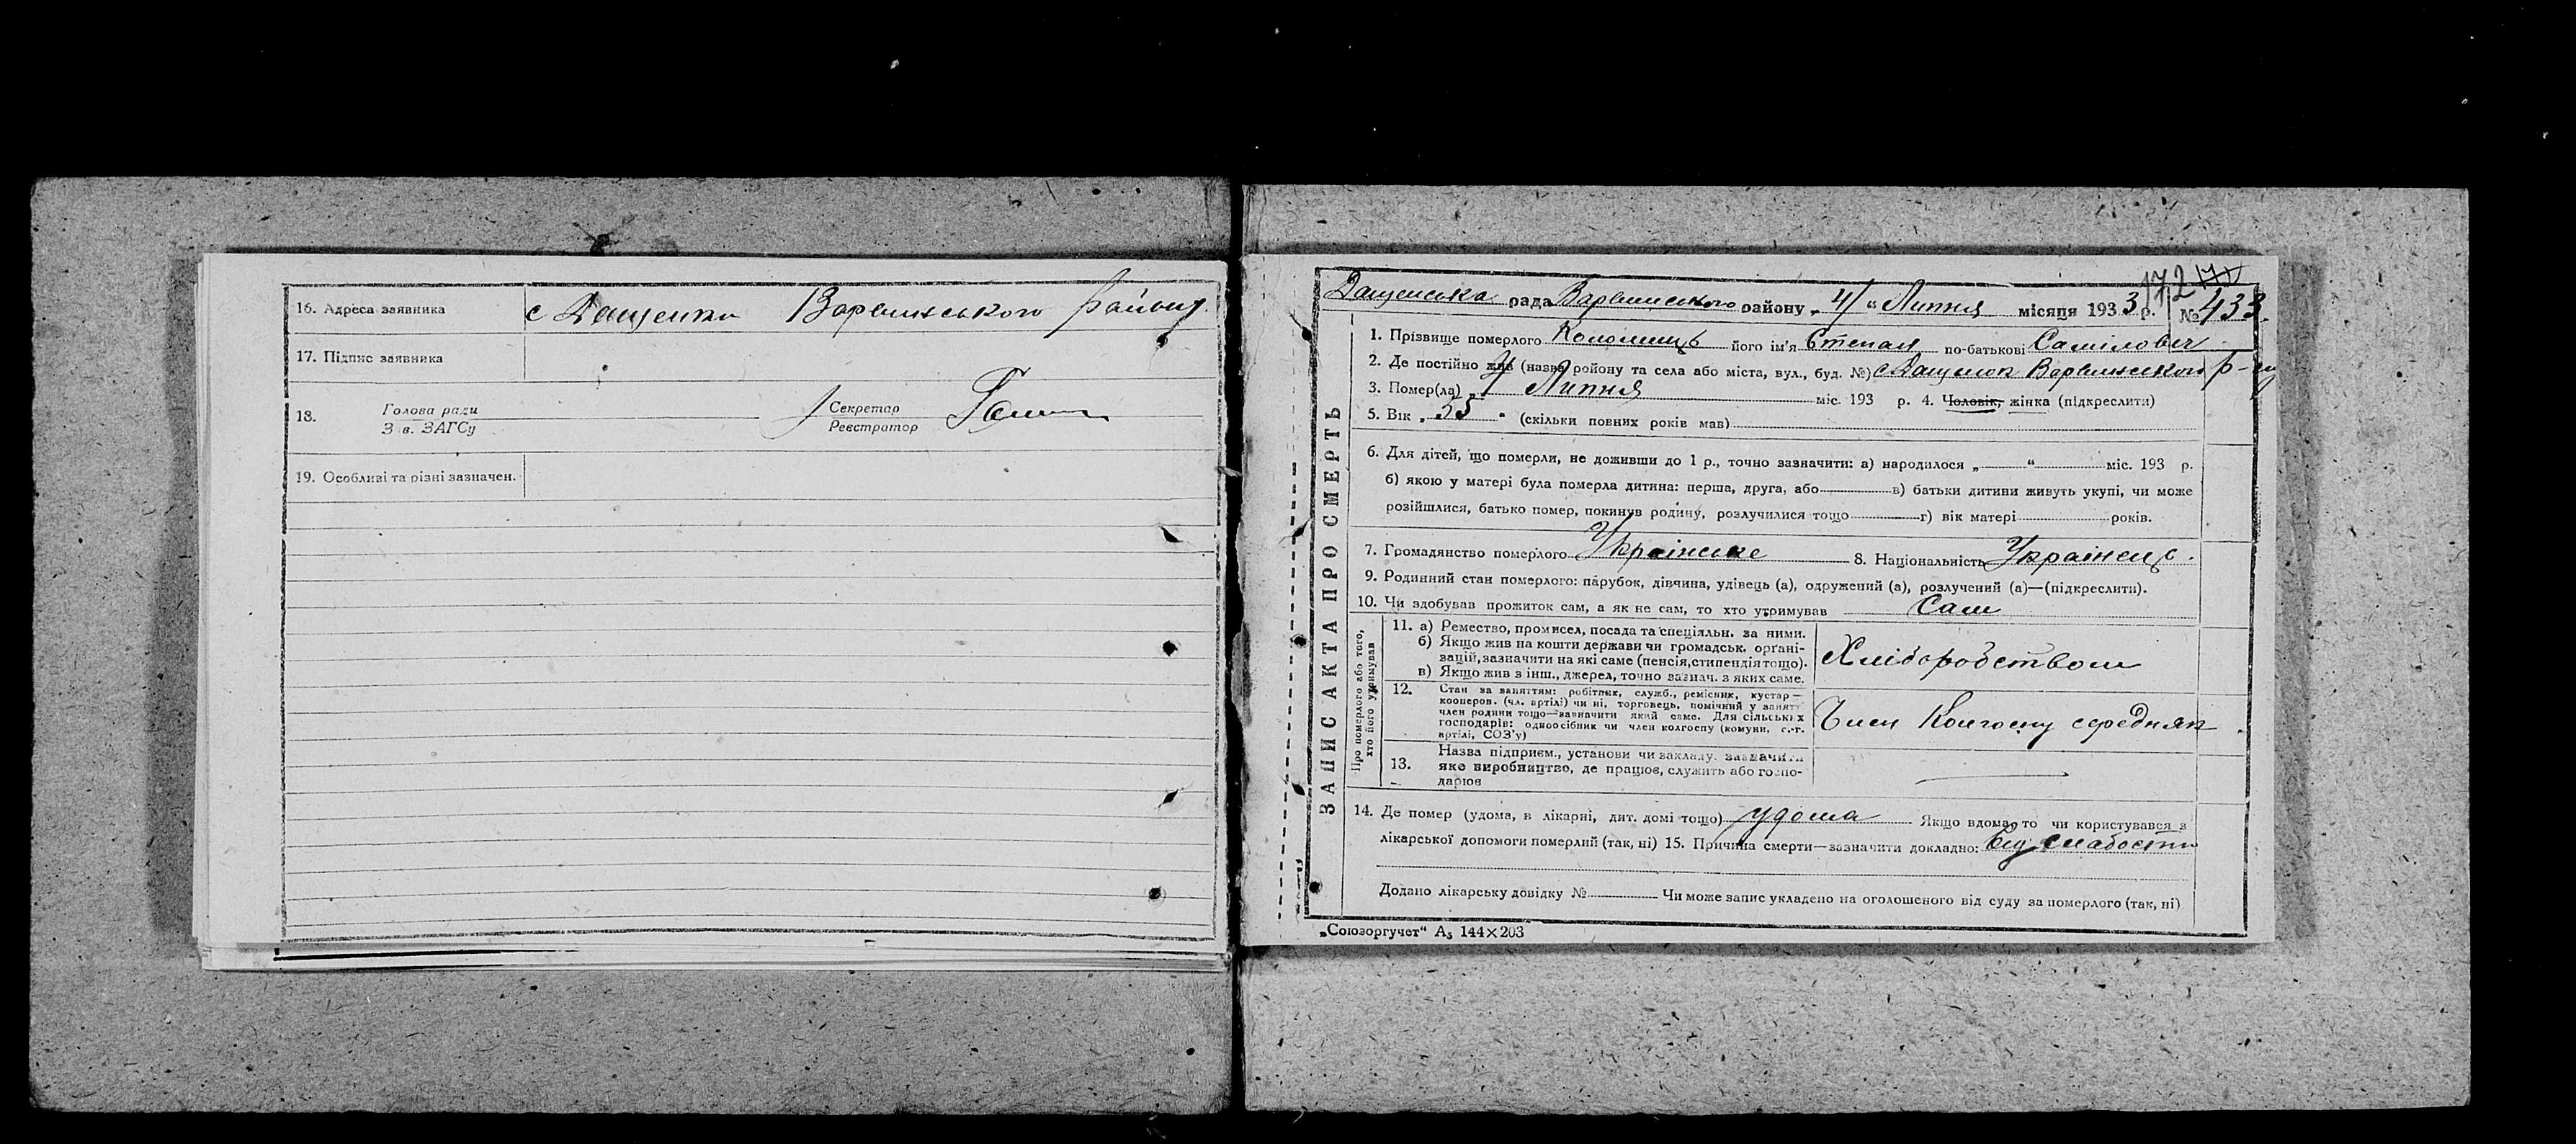 16. Адреса заявника с Дащенки Варвинського району.
17. Підпис заявника
18. Голова ради Секретар
З в. ЗАГСу Реєстратор
19. Особливі та різні зазначен.
172
Дащенська рада Варвинського району „ 4 “ Липня місяця 1933 р. № 433.
ЗАПИС АКТА ПРО СМЕРТЬ
1. Прізвище померлого Коломиець його ім'я Степан по-батькові Самілович
2. Де постійно жив (назва району та села або міста, вул., буд. №) с Дащенки Варвинського р-ну
3. Помер(ла) „ 4 Липня міс. 193 р. 4. Чоловік, жінка (підкреслити)
5. Вік „ 35 “ (скільки повних років мав)
6. Для дітей, що померли, не доживши до 1 р., точно зазначити: а) народилося „ “ міс. 193 р.
б) якою у матері була померла дитина: перша, друга, або в) батьки дитини живуть укупі, чи може
розійшлися, батько помер, покинув родину, розлучилися тощо г) вік матері років.
7. Громадянство померлого Українське 8. Національність Украінець.
9. Родинний стан померлого: парубок, дівчина, удівець (а), одружений (а), розлучений (а)—(підкреслити).
10. Чи здобував прожиток сам, а як не сам, то хто утримував Сам
Про померлого або того,
хто його утримував
11. а) Ремество, промисел, посада та спеціяльн. за ними.
б) Якщо жив на кошти держави чи громадськ. орґані-
зацій, зазначити на які саме (пенсія, стипендія тощо).
в) Якщо жив з інш., джерел, точно зазнач. з яких саме.
Хліборобством
12. Стан за заняттям: робітник, служб., ремісник, кустар—
кооперов. (чл. артілі) чи ні, торговець, помічний у занятт
член родини тощо—зазначити який саме. Для сільських
господарів: одноосібник чи член колгоспу (комуни, с.-г.
артілі, СОЗ'у)
Член Колгоспу середняк
13. Назва підприєм., установи чи закладу. зазначити
яке виробництво, де працює, служить або госпо-
дарює
14. Де помер (удома, в лікарні, дит. домі тощо) удома Якщо вдома, то чи користувався з
лікарської допомоги померлий (так, ні) 15. Причина смерти—зазначити докладно: Від слабости
Додано лікарську довідку № Чи може запис укладено на оголошеного від суду за померлого (так, ні)
„Союзоргучет“ А₅ 144×203